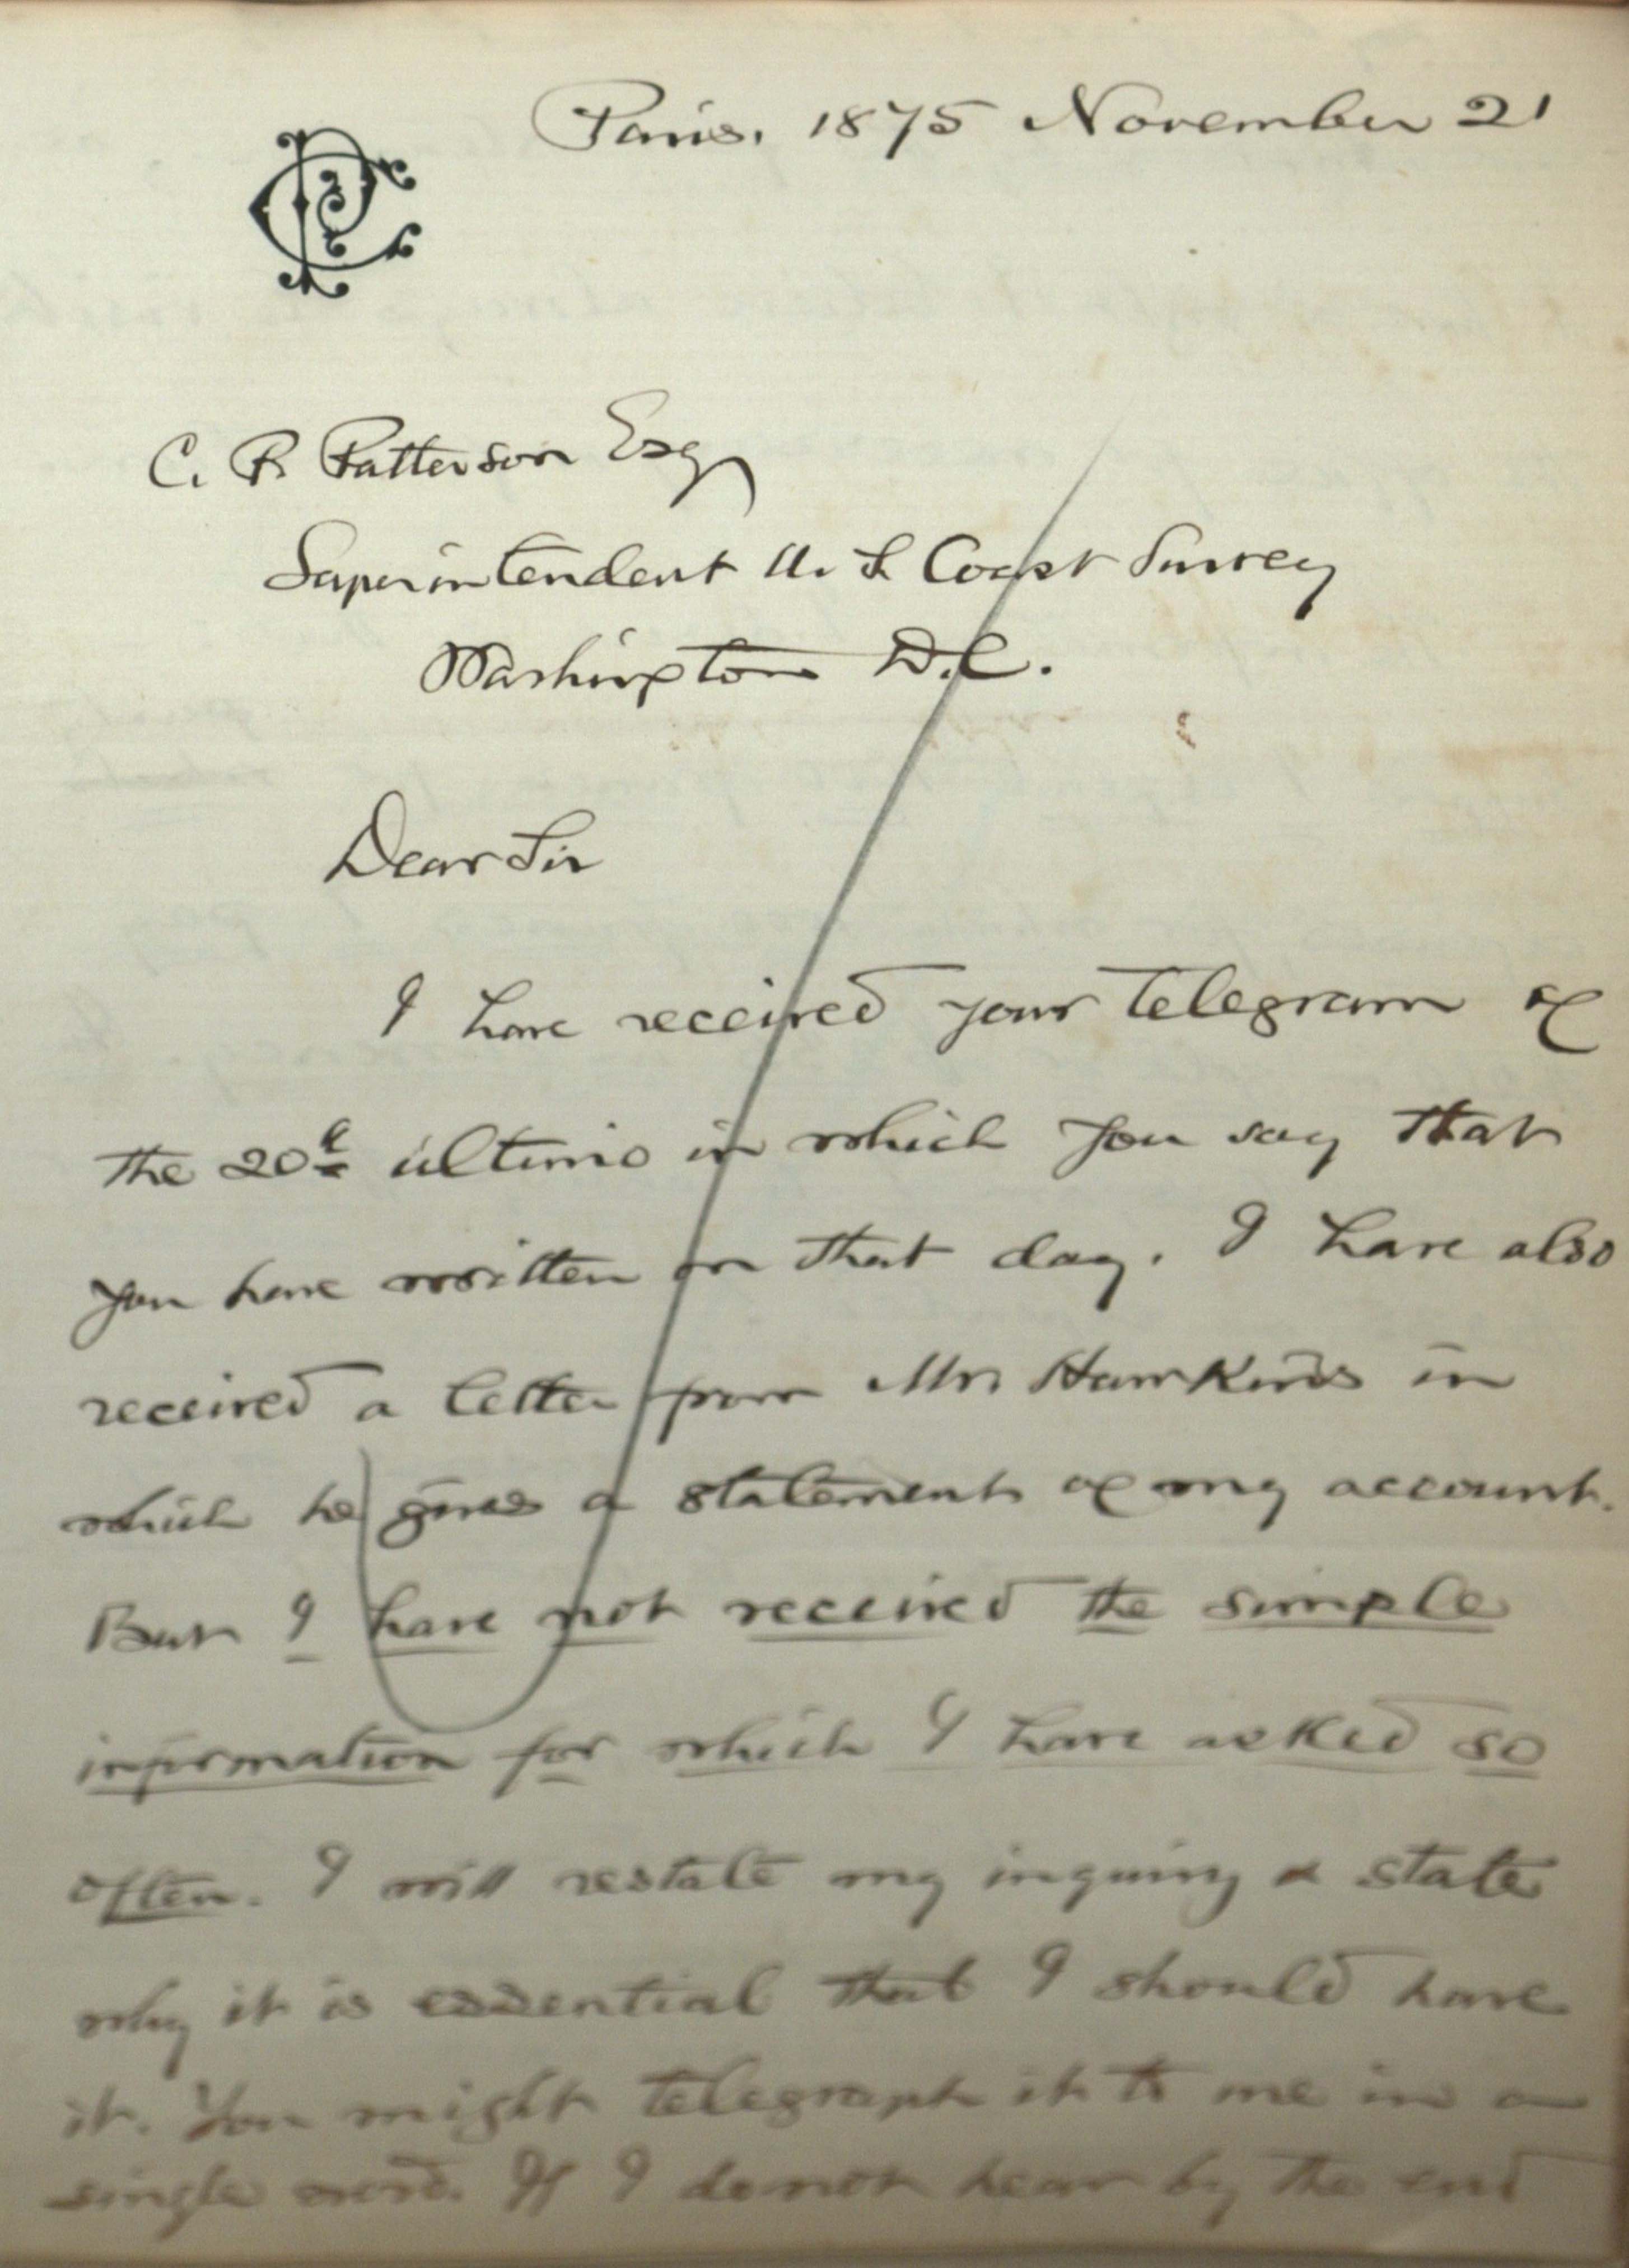 Paris. 1875 November 21
C. P. Patterson Esq
Superintendent U. S. Coast Survey
Washington D.C.
Dear Sir
I have received your telegram of
the 20th ultimo in which you say that
you have written on that day. I have also
received a letter from Mr. Hawkins in
which he gives a statement of my account.
But I have not received the simple
information for which I have asked so
often. I will restate my inquiry & state
why it is essential that I should have
it. You might telegraph it to me in a
single word. If I do not hear by the end